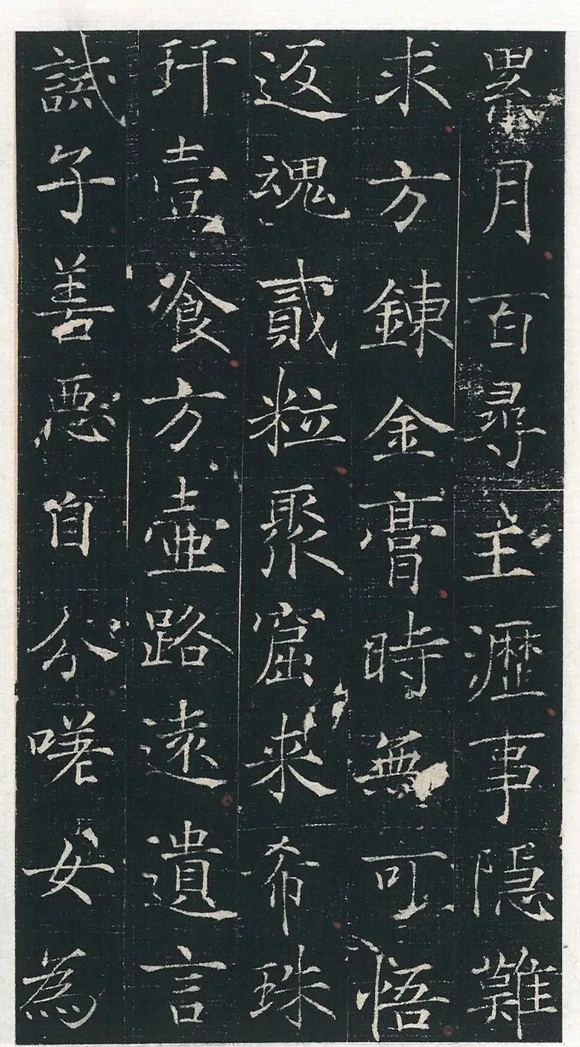 累月百尋主瀝事隱難
求方錬金膏時無可悟
返魂貳粒聚窟来希珠
玕壹飡方壺路遠遺言
誡子善惡自分嗟女為